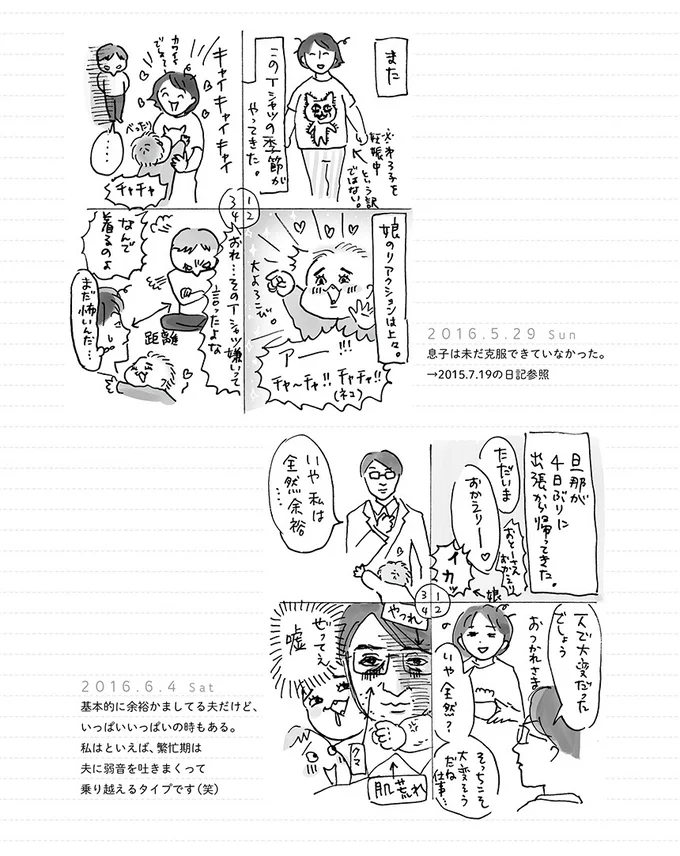 また
このTシャツの季節が
やってきた。
※第3子を
妊娠中
という訳
ではない。
1
2
3
4
娘のリアクションは上々。
大よろこび。
アー !!!
チャ〜チャ!! チャチャ!!
(ネコ)
キャイキャイキャイ
カワイイ
でしょ〜
べったり
・・・
チャチャ
おれ…そのTシャツ嫌いって
言ったよな
なんで
着るのよ
距離
まだ怖いんだ…
2016.5.29 Sun
息子は未だ克服できていなかった。
→2015.7.19の日記参照
旦那が
4日ぶりに
出張から帰ってきた。
ただいま
おかえりー♡
おとーさん
おかえり
イカッ
←娘
1
2
3
4
一人で大変だった
でしょう
おつかれさま
の
いや全然?
そっちこそ
大変そう
だね
仕事…
いや 私は
全然余裕
……
やつれ
ぜってえ
嘘
クマ
肌荒れ
2016.6.4 Sat
基本的に余裕かましてる夫だけど、
いっぱいいっぱいの時もある。
私はといえば、繁忙期は
夫に弱音を吐きまくって
乗り越えるタイプです(笑)